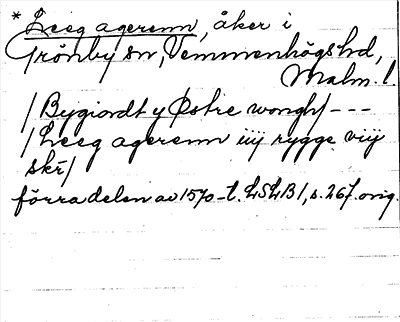 * Leeg agerenn, åker i
Grönby sn, Vemmenhögs hd,
Malm. l.
/Bygiordt y Østre wongh/ ---
/Leeg agerenn iiij rygge viij
skr/
förra delen av 1570-t. LSLB 1, s. 267. orig.